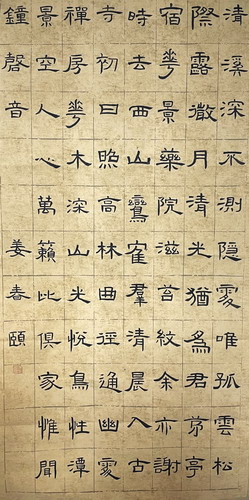 清溪深不測隱處唯孤雲松
際露微月清光猶為君茅亭
宿華景藥院滋苔紋余亦謝
時去西山鸞鶴群清晨入古
寺初日照高林曲徑通幽處
禪房華木深山光悅鳥性潭
景空人心萬籟此俱寂惟聞
鐘磬音 姜春頤